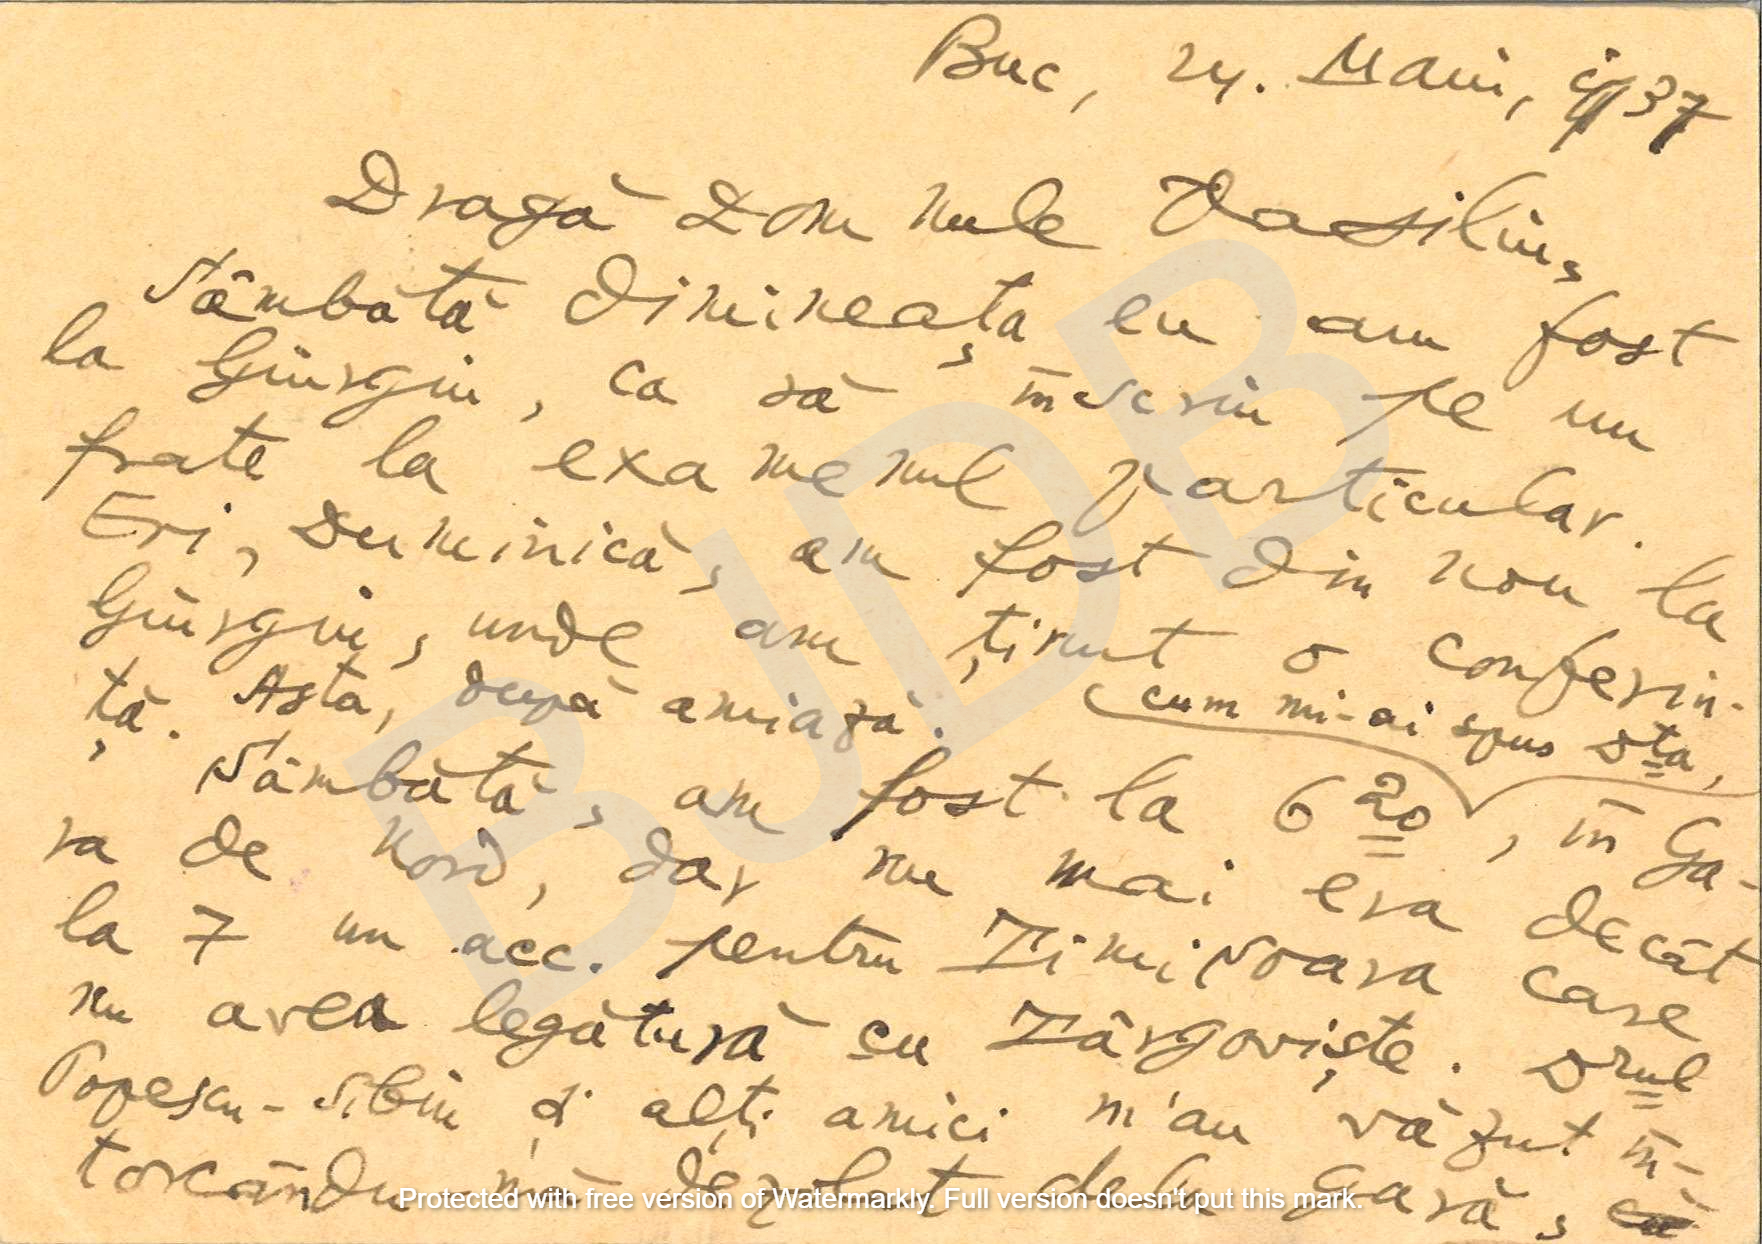 Buc, 24. Maiu, 1937
Dragă Domnule Vasiliu,
Sâmbătă dimineața eu am fost
la Giurgiu, ca să înscriu pe un
frate la examenul particular.
Eri, Duminică, am fost din nou la
Giurgiu, unde am ținut o conferin-
ță. Asta, după amiază.
cum mi-ai spus Dta,
Sâmbătă, am fost la 6 20, în Ga-
ra de Nord, dar nu mai era decât
la 7 un acc. pentru Timișoara care
nu avea legătură cu Târgoviște. Drul
Popescu-Sibiu și alți amici m'au văzut în-
torcându-mă dezolat dela gară,
BJDB
Protected with free version of Watermarkly. Full version doesn't put this mark.